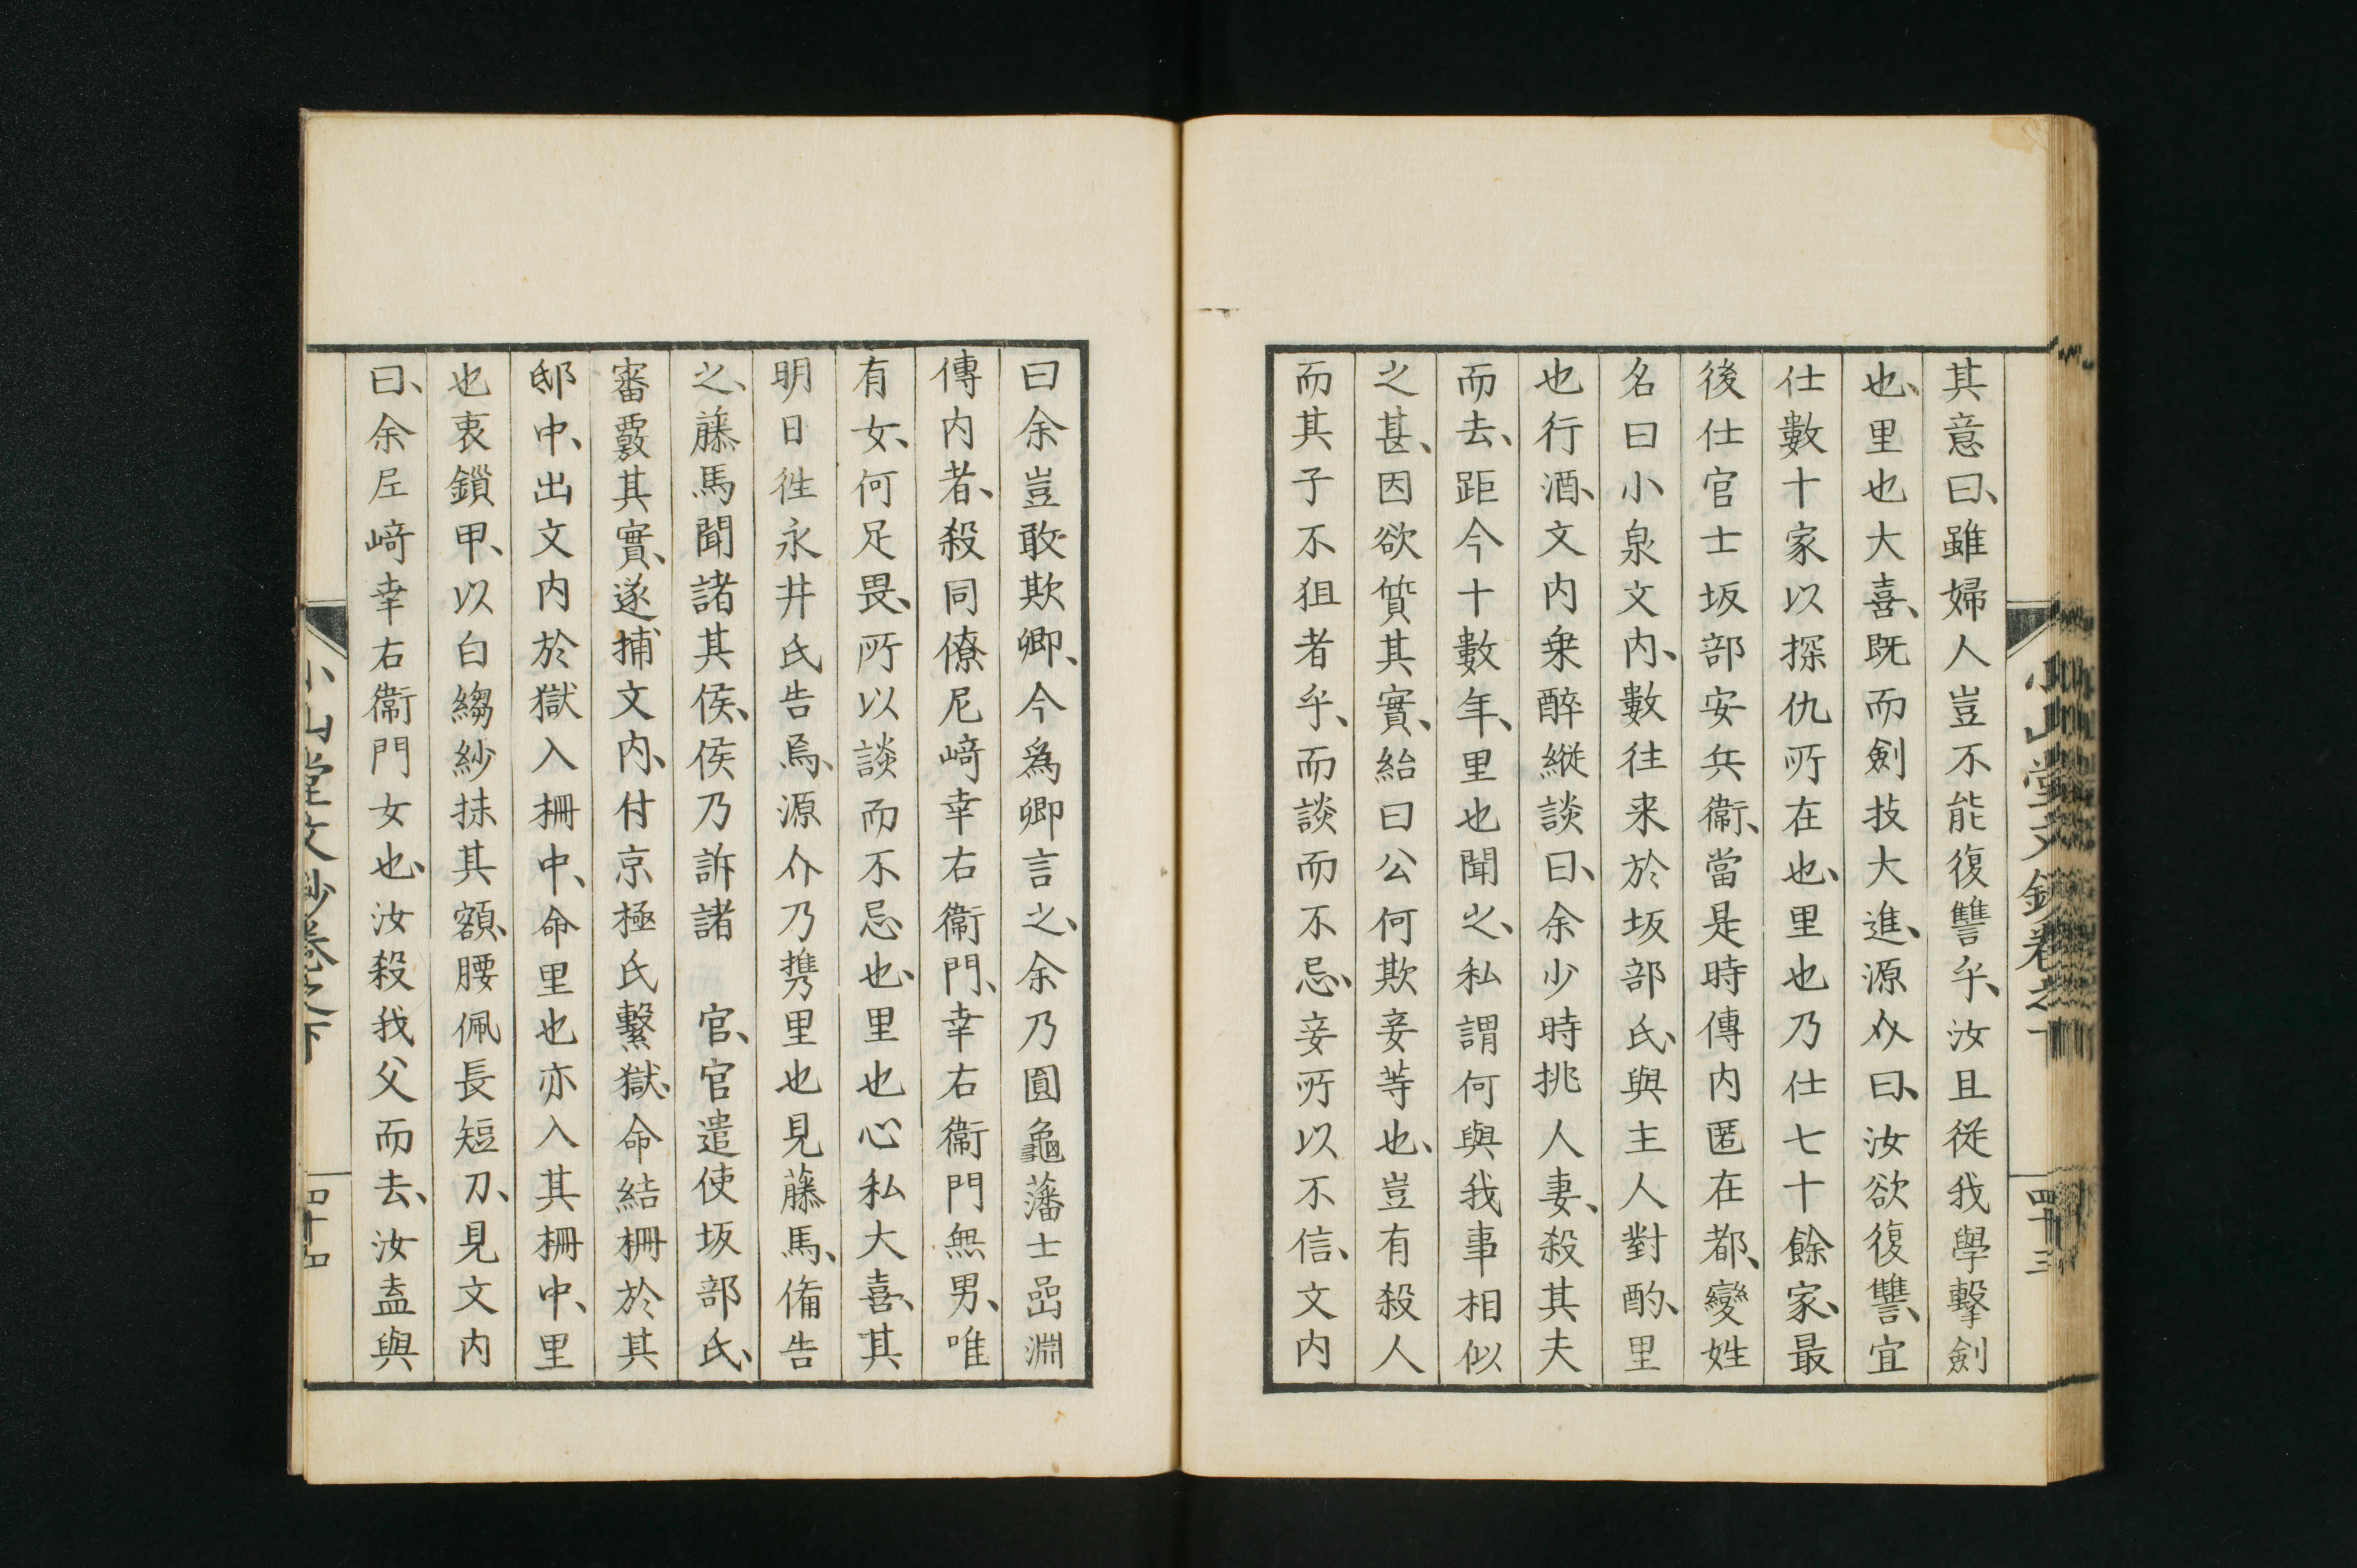 小山堂文鈔卷之下
四十三
其意曰、雖婦人豈不能復讐乎、汝且從我學擊劍
也、里也大喜、既而劍技大進、源介曰、汝欲復讐、宜
仕數十家以探仇所在也、里也乃仕七十餘家、最
後仕官士坂部安兵衞、當是時傳内匿在都、變姓
名曰小泉文内、數往来於坂部氏、與主人對酌、里
也行酒、文内乗醉縱談曰、余少時挑人妻、殺其夫
而去、距今十數年、里也聞之、私謂何與我事相似
之甚、因欲質其實、紿曰公何欺妾等也、豈有殺人
而其子不狙者乎、而談而不忌、妾所以不信、文内
曰余豈敢欺卿、今爲卿言之、余乃圓龜藩士嵒淵
傳内者、殺同僚尼﨑幸右衞門、幸右衞門無男、唯
有女、何足畏、所以談而不忌也、里也心私大喜、其
明日徃永井氏告焉、源介乃携里也見藤馬、俻告
之、藤馬聞諸其侯、侯乃訴諸　官、官遣使坂部氏、
審覈其實、遂捕文内、付京極氏繫獄、命結柵於其
邸中、出文内於獄入柵中、命里也亦入其柵中、里
也衷鎖甲、以白縐紗抹其額、腰佩長短刀、見文内
曰、余𡰱﨑幸右衞門女也、汝殺我父而去、汝盍與
小山堂文鈔卷之下
四十四